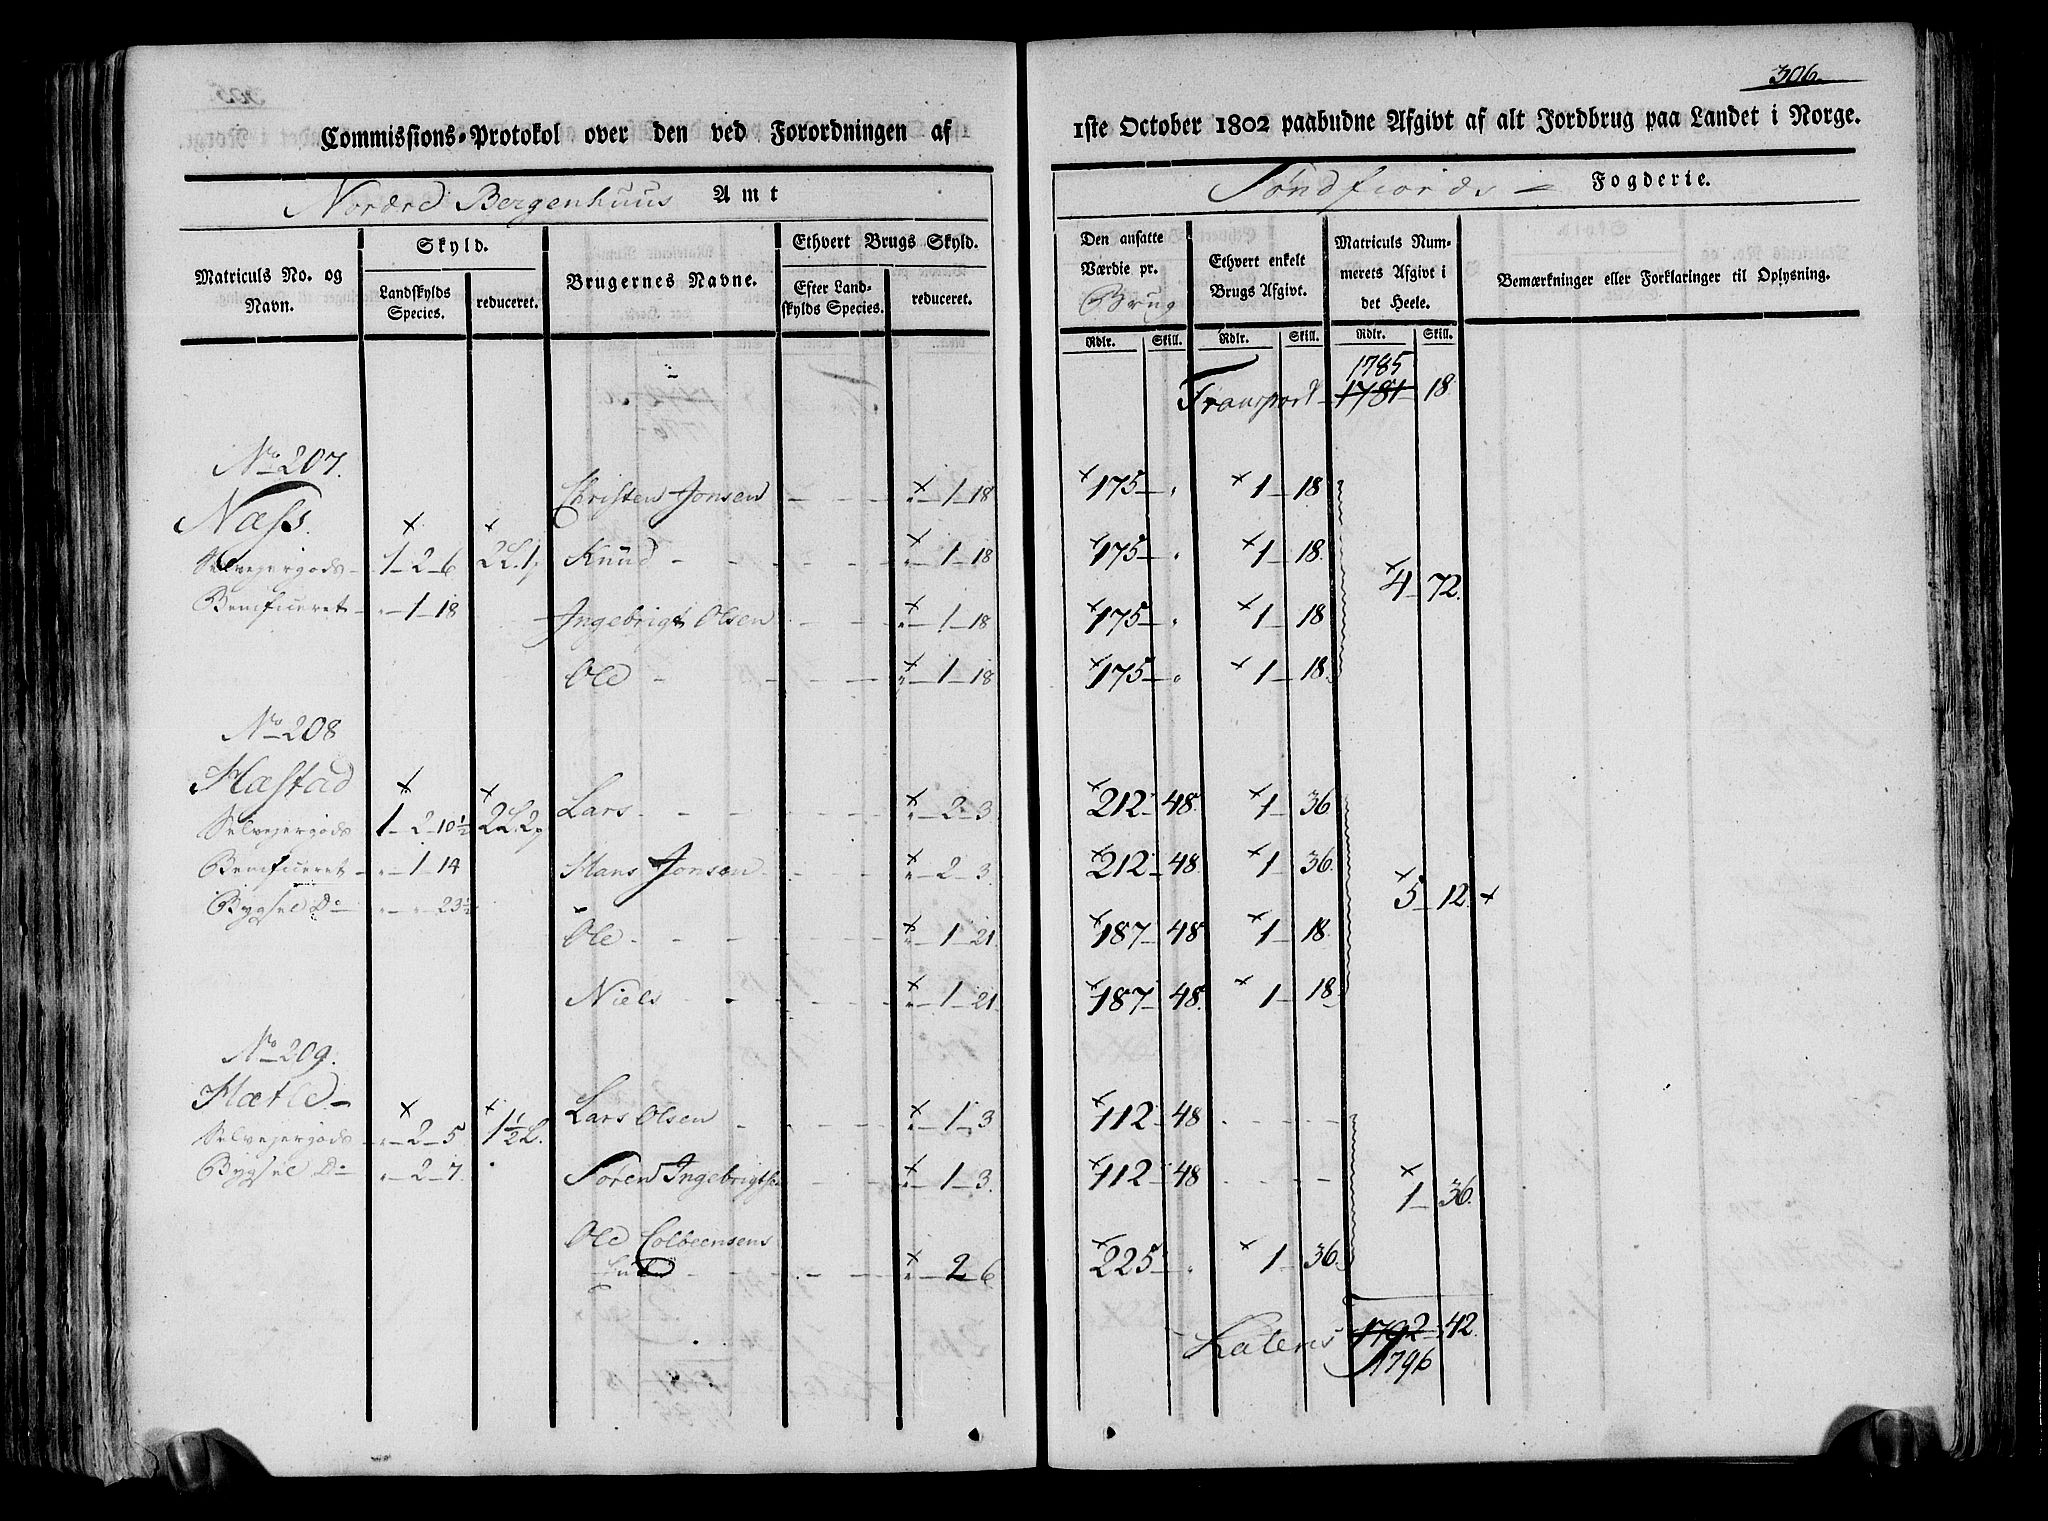 306.
Commissions-Protokol over den ved Forordningen af 1ste October 1802 paabudne Afgivt af alt Jordbrug paa Landet i Norge.
Nordre Bergenhuus Amt
Søndfiords Fogderie.
Matriculs No. og Navn.
Skyld.
Landskylds Species.
reduceret.
Brugernes Navne.
Ethvert Brugs Skyld.
Efter Landskylds Species.
reduceret.
Den ansatte Værdie pr. Brug
Ethvert enkelt Brugs Afgivt.
Matriculs Nummerets Afgivt i det Heele.
Bemærkninger eller Forklaringer til Oplysning.
Rdlr. Skill. Rdlr. Skill. Rdlr. Skill.
1785
Transport 1781 18
No 207.
Næss.
Christen Jonsen - - - " 1 - 18 175 - " 1 - 18
Selvejergods - 1 - 2 - 6 2L. 1 Knud - - - - " 1 - 18 175 - " 1 - 18.
4 72.
Beneficeret - " - 1 - 18 Ingebrigt Olsen - - " 1 - 18 175 - " 1 - 18
Ole - - - - " 1 - 18 175 - " 1 - 18.
No 208
Hæstad
Selvejergods 1 - 2 - 10½ 2L. 2 Lars - - - - " 2 - 3 212 - 48. 1 36
Beneficeret - " - 1 - 14 Hans Jonsen - - - " 2 - 3. 212 - 48. 1 - 36.
5 - 12.
Bygsel Do " - " - 23½
Ole - - - - " 1 - 21. 187 - 48. 1 - 18.
Niels - - - - " 1 - 21. 187 - 48. 1 - 18.
No 209.
Hætle -
Selvejergods " - 2 - 5. 1½ L. Lars Olsen - - - " 1 - 3 112 - 48
Bygsel Do " - 2 - 7. Søren Ingebrigtsen - - " 1 - 3. 112 - 48
1 - 36.
Ole Colbeensens
- - - - " 2 - 6 225 - " 1 - 36.
Lateris 1792 - 42.
1796